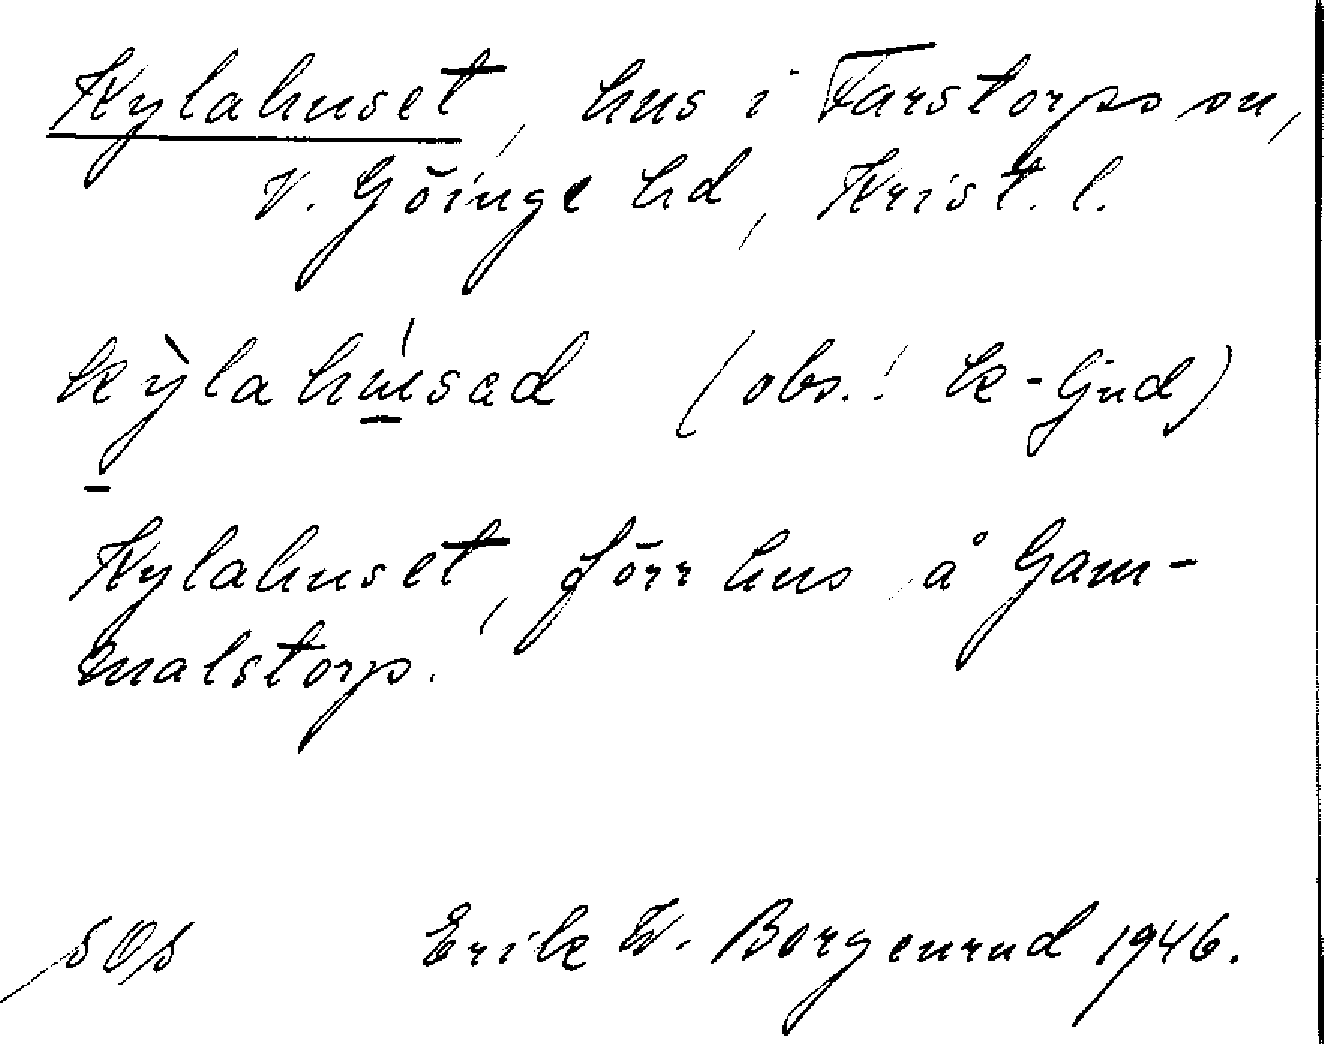 Kylahuset, hus i Farstorps sn,
V. Göinge hd, Krist. l.
kỳlahú̱sad (obs.! k-ljud)
Kylahuset, förr hus å Gam-
malstorp.
SOS Erik W. Borgenrud 1946.